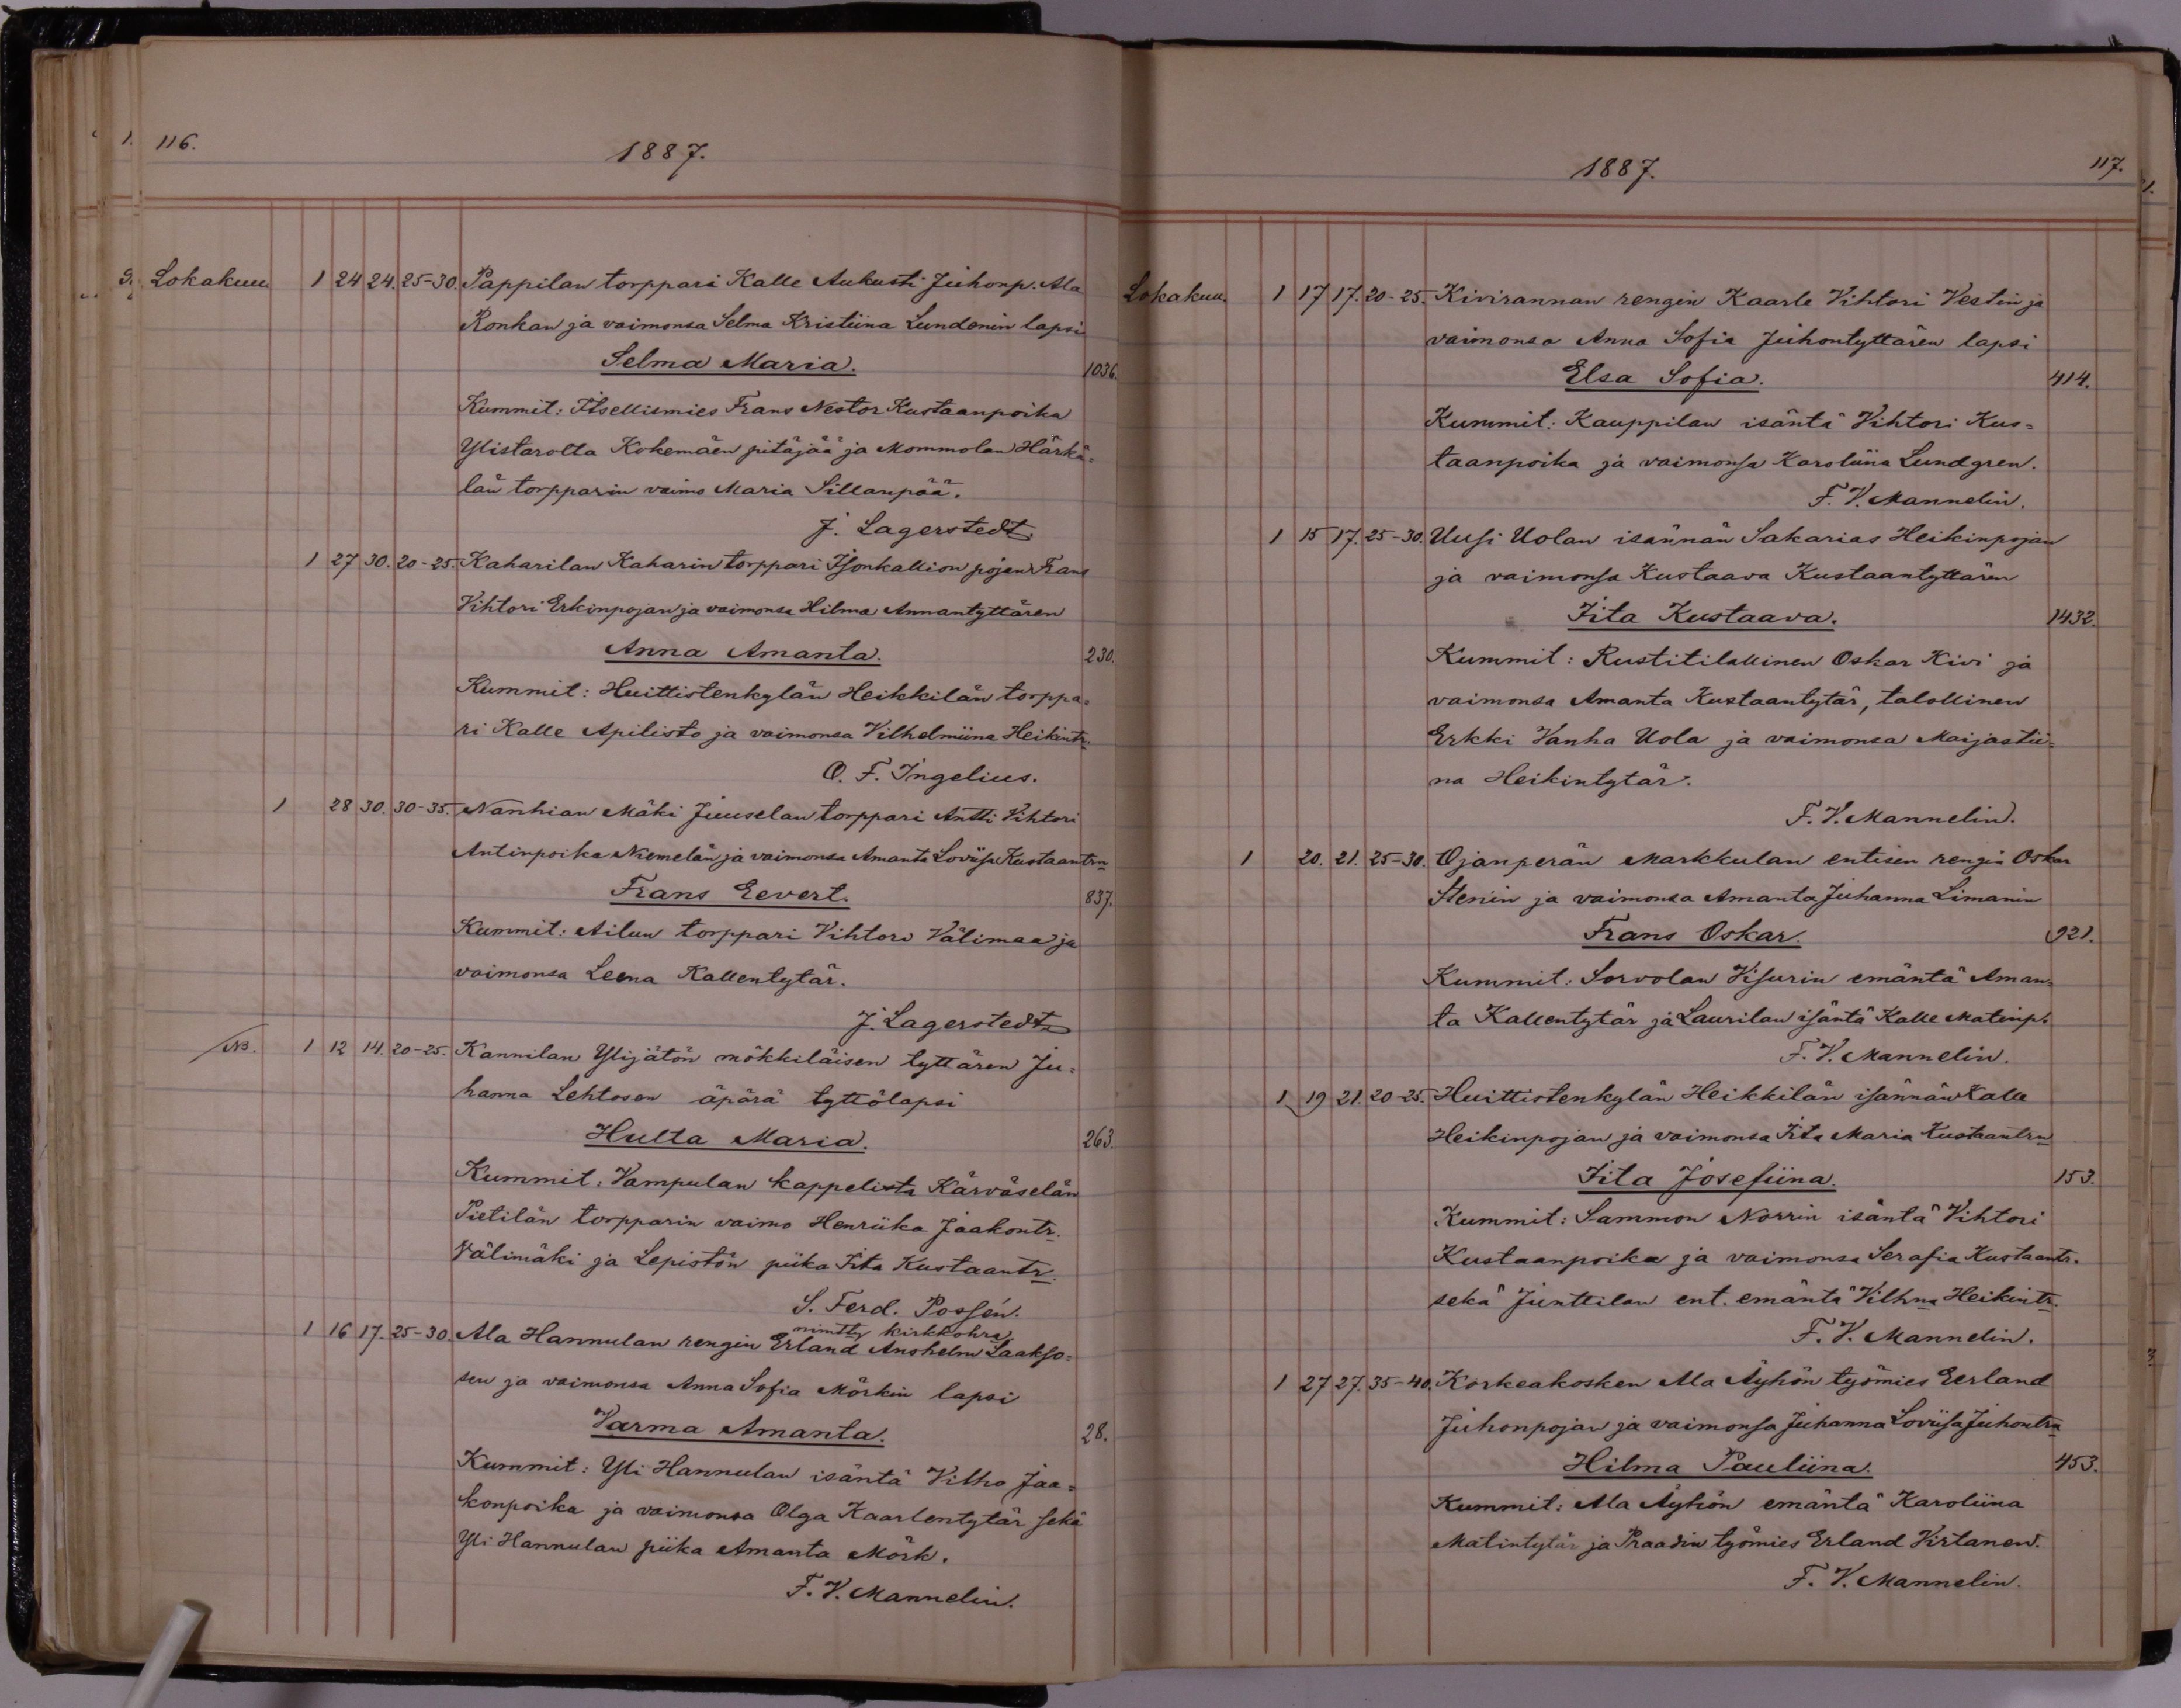 116.
1887.
Lokakuu 1 24 24. 25-30. Pappilan torppari Kalle Aukusti Juhonp. Ala
Ronkan ja vaimonsa Selma Kristiina Lundenin lapsi
Selma Maria. 1036.
Kummit: Itsellismies Frans Nestor Kustaanpoika
Ylistarolta Kokemäen pitäjää ja Mommolan Härkä=
län torpparin vaimo Maria Sillanpää.
J. Lagerstedt.
1 27 30. 20-25. Kaharilan Kaharin torppari Isonkallion pojan Frans
Vihtori Erkinpojan ja vaimonsa Hilma Annantyttären
Anna Amanta. 230.
Kummit: Huittistenkylän Heikkilän torppa=
ri Kalle Apilisto ja vaimonsa Vilhelmiina Heikintr.
O. F. Ingelius.
1 28 30. 30-35. Nanhian Mäki Juuselan torppari Antti Vihtori
Antinpoika Niemelän ja vaimonsa Amanta Loviisa Kustaantrn
Frans Eevert. 837.
Kummit: Ailun torppari Vihtori Välimaa ja
vaimonsa Leena Kallentytär.
J. Lagerstedt.
NB. 1 12 14. 20-25. Kannilan Ylijätön mökkiläisen tyttären Ju=
hanna Lehtosen äpärä tyttölapsi
Hulta Maria. 263.
Kummit: Vampulan kappelista Kärväselän
Pietilän torpparin vaimo Henriika Jaakontr.
Välimäki ja Lepistön piika Iita Kustaantr.
S. Ferd. Possén.
nimtty kirkkohra.
1 16 17. 25-30. Ala Hannulan rengin Erland Anshelm Laakso=
sen ja vaimonsa Anna Sofia Mörkin lapsi
Varma Amanta. 28.
Kummit: Yli Hannulan isäntä Vilho Jaa=
konpoika ja vaimonsa Olga Kaarlentytär sekä
Yli Hannulan piika Amanta Mörk.
F. V. Mannelin.
1887.
117.
Lokakuu. 1 17 17. 20-25. Kivirannan rengin Kaarle Vihtori Vestin ja
vaimonsa Anna Sofia Juhontyttären lapsi
Elsa Sofia. 414.
Kummit: Kauppilan isäntä Vihtori Kus=
taanpoika ja vaimonsa Karoliina Lundgren.
F. V. Mannelin.
1 15 17. 25-30. Uusi Uolan isännän Sakarias Heikinpojan
ja vaimonsa Kustaava Kustaantyttären
Iita Kustaava. 1432.
Kummit: Rustitilallinen Oskar Kivi ja
vaimonsa Amanta Kustaantytär, talollinen
Erkki Vanha Uola ja vaimonsa Maijastii=
na Heikintytär.
F. V. Mannelin.
1 20. 21. 25-30. Ojanperän Markkulan entisen rengin Oskar
Stenin ja vaimonsa Amanta Juhanna Limanin
Frans Oskar. 921.
Kummit: Sorvolan Visurin emäntä Aman=
ta Kallentytär ja Laurilan isäntä Kalle Matinp.
F. V. Mannelin.
1 19 21. 20-25. Huittistenkylän Heikkilän isännän Kalle
Heikinpojan ja vaimonsa Iita Maria Kustaantrn
Iita Josefiina. 153.
Kummit: Sammon Norrin isäntä Vihtori
Kustaanpoika ja vaimonsa Serafia Kustaantr.
sekä Junttilan ent. emäntä Vilhna Heikintr.
F. V. Mannelin.
1 27 27. 35-40. Korkeakosken Ala Äyhön työmies Eerland
Juhonpojan ja vaimonsa Juhanna Loviisa Juhontrn
Hilma Pauliina. 453.
Kummit: Ala Äyhön emäntä Karoliina
Matintytär ja Praadin työmies Erland Virtanen.
F. V. Mannelin.